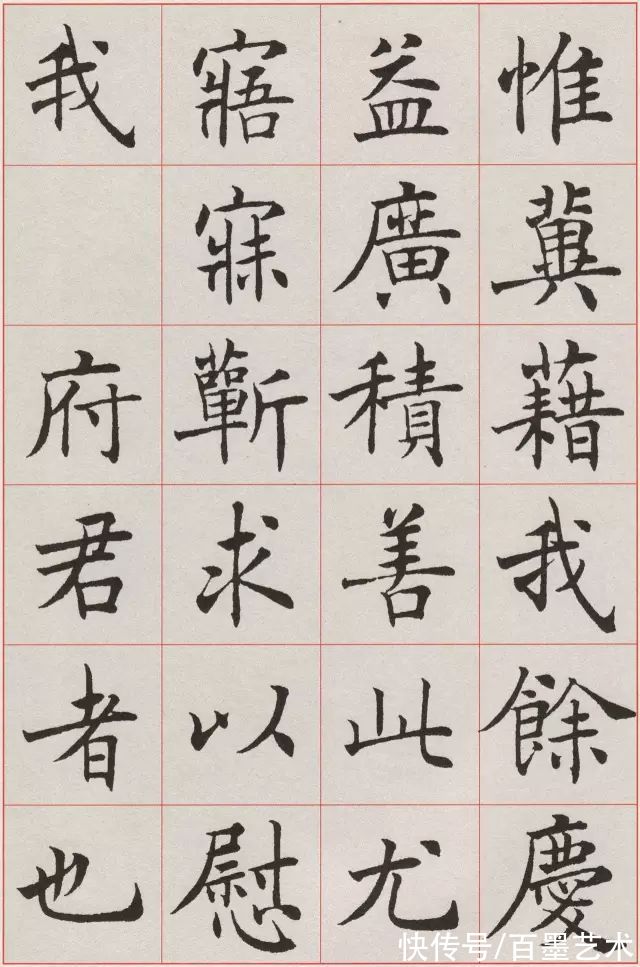 惟冀藉我餘慶
益廣積善此尤
寤寐蘄求以慰
我 府君者也
快传号/百墨艺术